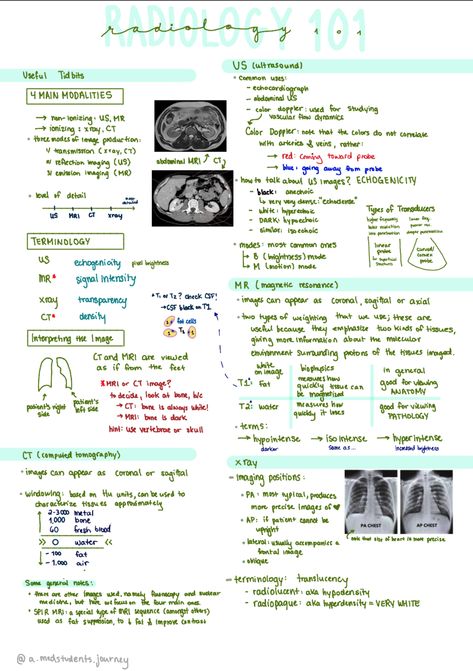 RADIOLOGY 101
radiology 101
Useful Tidbits
4 MAIN MODALITIES
→ non-ionizing: US, MR
→ ionizing: xray, CT
• three modes of image production:
1/ transmission (xray, CT)
2/ reflection imaging (US)
3/ emission imaging (MR)
• level of detail
US MRI CT xray
abdominal MRI ↑ CT↓
TERMINOLOGY
US echogenicity pixel brightness
MR* signal intensity
xray transparency
CT* density
*T1 or T2? check CSF!
↳CSF black on T1
fat cells
Interpreting the Image
patient's right side
patient's left side
CT and MRI are viewed
as if from the feet
*MRI or CT image?
to decide, look at bone, b/c
→ CT: bone is always white!
→ MRI: bone is dark
hint: use vertebrae or skull
CT (computed tomography)
• images can appear as coronal or sagittal
• windowing: based on Hu units, can be used to
characterize tissues approximately
2-3000 metal
1,000 bone
60 fresh blood
0 water
-100 fat
-1,000 air
Some general notes:
• there are other images used, namely fluoroscopy and nuclear
medicine, but here we focus on the four main ones.
• SPIR MRI: a special type of MRI sequence (amongst others)
used as fat suppression, to ↓ fat & improve contrast
US (ultrasound)
• common uses:
- echocardiograph
- abdominal US
- color doppler: used for studying
vascular flow dynamics
Color Doppler: note that the colors do not correlate
with arteries & veins, rather:
→ red: coming toward probe
→ blue: going away from probe
• how to talk about US images? ECHOGENICITY
- black: anechoic
↳ very very dense "echodense"
- white: hyperechoic
- DARK: hypoechoic
- similar: isoechoic
• modes: most common ones
→ B (brightness) mode
→ M (motion) mode
Types of Transducers
higher frequency
better resolution
less penetration
linear probe
→ superficial structures
lower freq.
poorer res.
deeper penetration
curved/convex probe
MR (magnetic resonance)
• images can appear as coronal, sagittal or axial
• two types of weighting that we use; these are
useful because they emphasize two kinds of tissues,
giving more information about the molecular
environment surrounding protons of the tissues imaged.
white on image biophysics in general
T1: fat measures how quickly tissue can be magnetized good for viewing ANATOMY
T2: water measures how quickly it loses good for viewing PATHOLOGY
• terms:
→ hypointense → isointense → hyperintense
darker same as... increased brightness
xray
= imaging positions:
• PA: most typical, produces
more precise images of ♥
• AP: if patient cannot be
upright
• lateral: usually accompanies a
frontal image
• oblique
PA CHEST AP CHEST
note that size of heart is more precise
= terminology: translucency
- radiolucent: aka hypodensity
- radiopaque: aka hyperdensity = VERY WHITE
@a.medstudents.journey